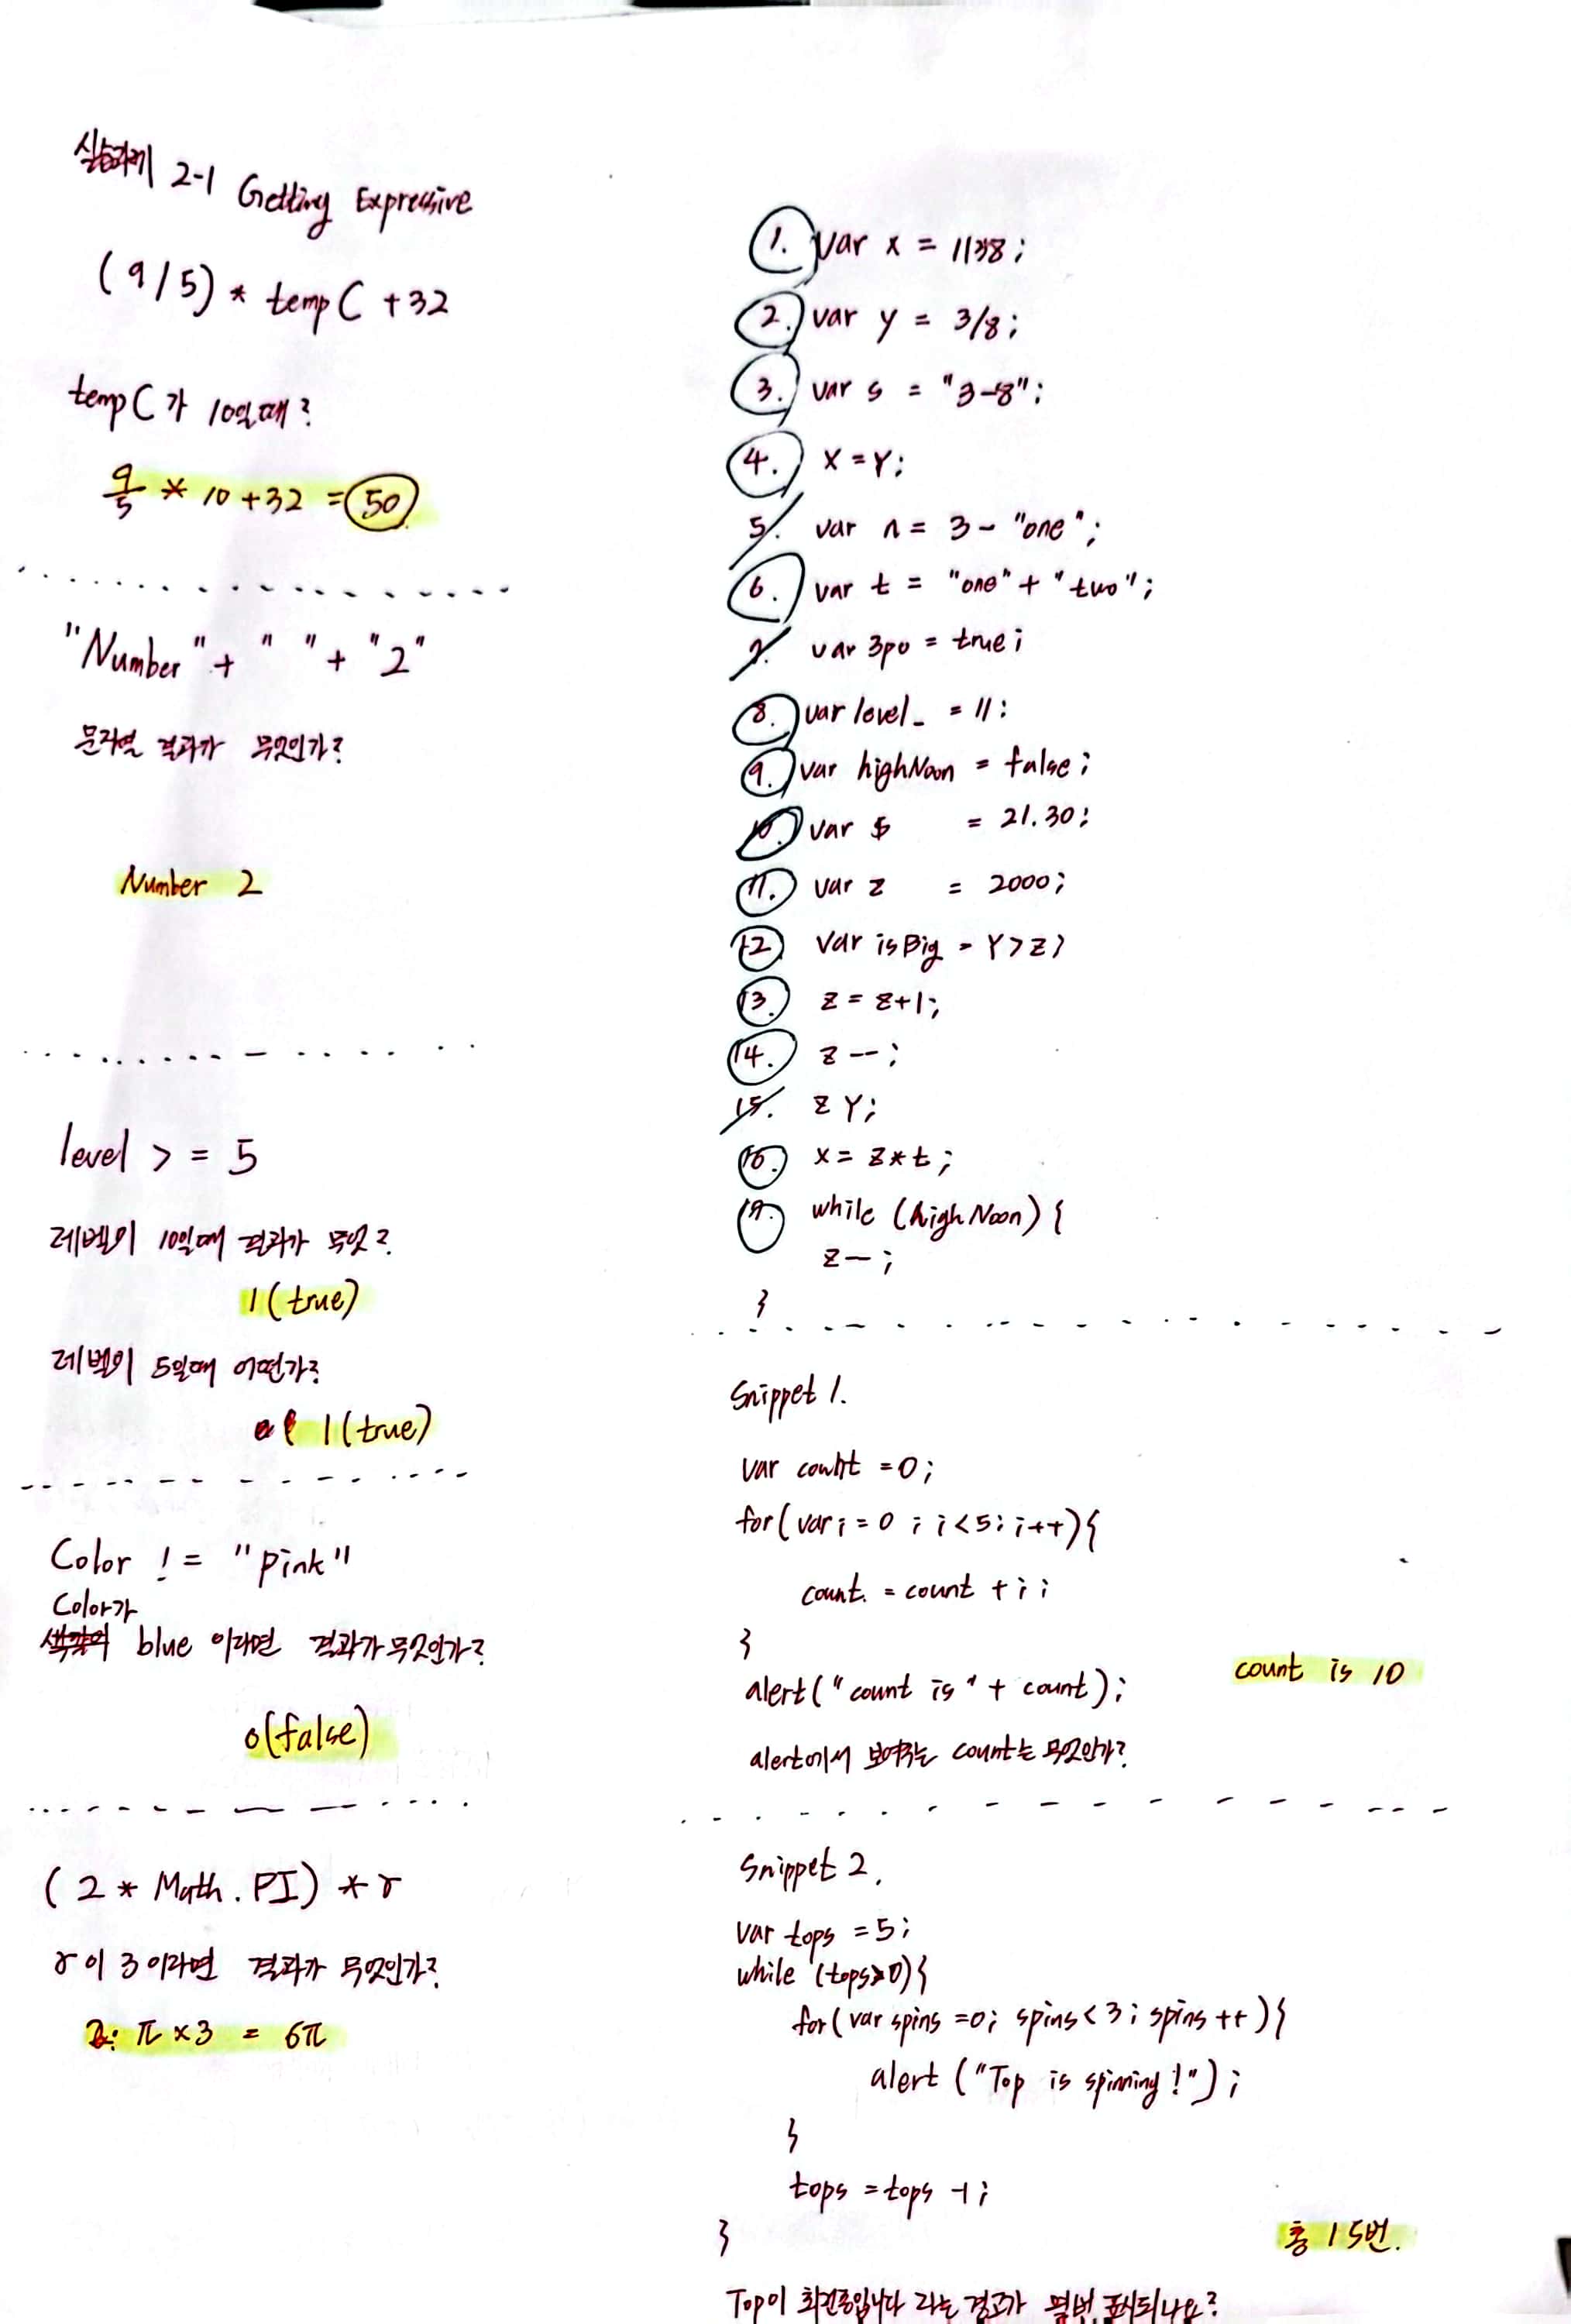 실습과제 2-1 Getting Expressive
(9/5) * tempC +32
tempC가 10일때?
9/5 * 10 +32 = 50
"Number" + " " + "2"
문자열 결과가 무엇인가?
Number 2
level >= 5
레벨이 10일때 결과가 무엇?
1(true)
레벨이 5일때 어떤가?
1(true)
Color != "pink"
Color가
blue 이라면 결과가 무엇인가?
0(false)
(2 * Math.PI) * r
r이 3이라면 결과가 무엇인가?
2· π ×3 = 6π
1. var x = 1138;
2. var y = 3/8;
3. var s = "3-8";
4. x = Y;
5. var n = 3 - "one";
6. var t = "one" + "two";
7. var 3po = true;
8. var level_ = 11;
9. var highNoon = false;
10. var $ = 21.30;
11. var z = 2000;
12 var isBig = Y>Z;
13. z = z+1;
14. z--;
15. z Y;
16. x = z*t;
17. while (highNoon) {
z--;
}
Snippet 1.
var count =0;
for( var i = 0 ; i <5; i++){
count. = count + i;
}
alert("count is" + count);
count is 10
alert에서 보여주는 count는 무엇인가?
Snippet 2.
var tops =5;
while (tops>0){
for( var spins =0; spins<3; spins ++){
alert ("Top is spinning!");
}
tops = tops -1;
}
총 15번.
Top이 회전중입니다 라는 경고가 몇번 표시되나요?